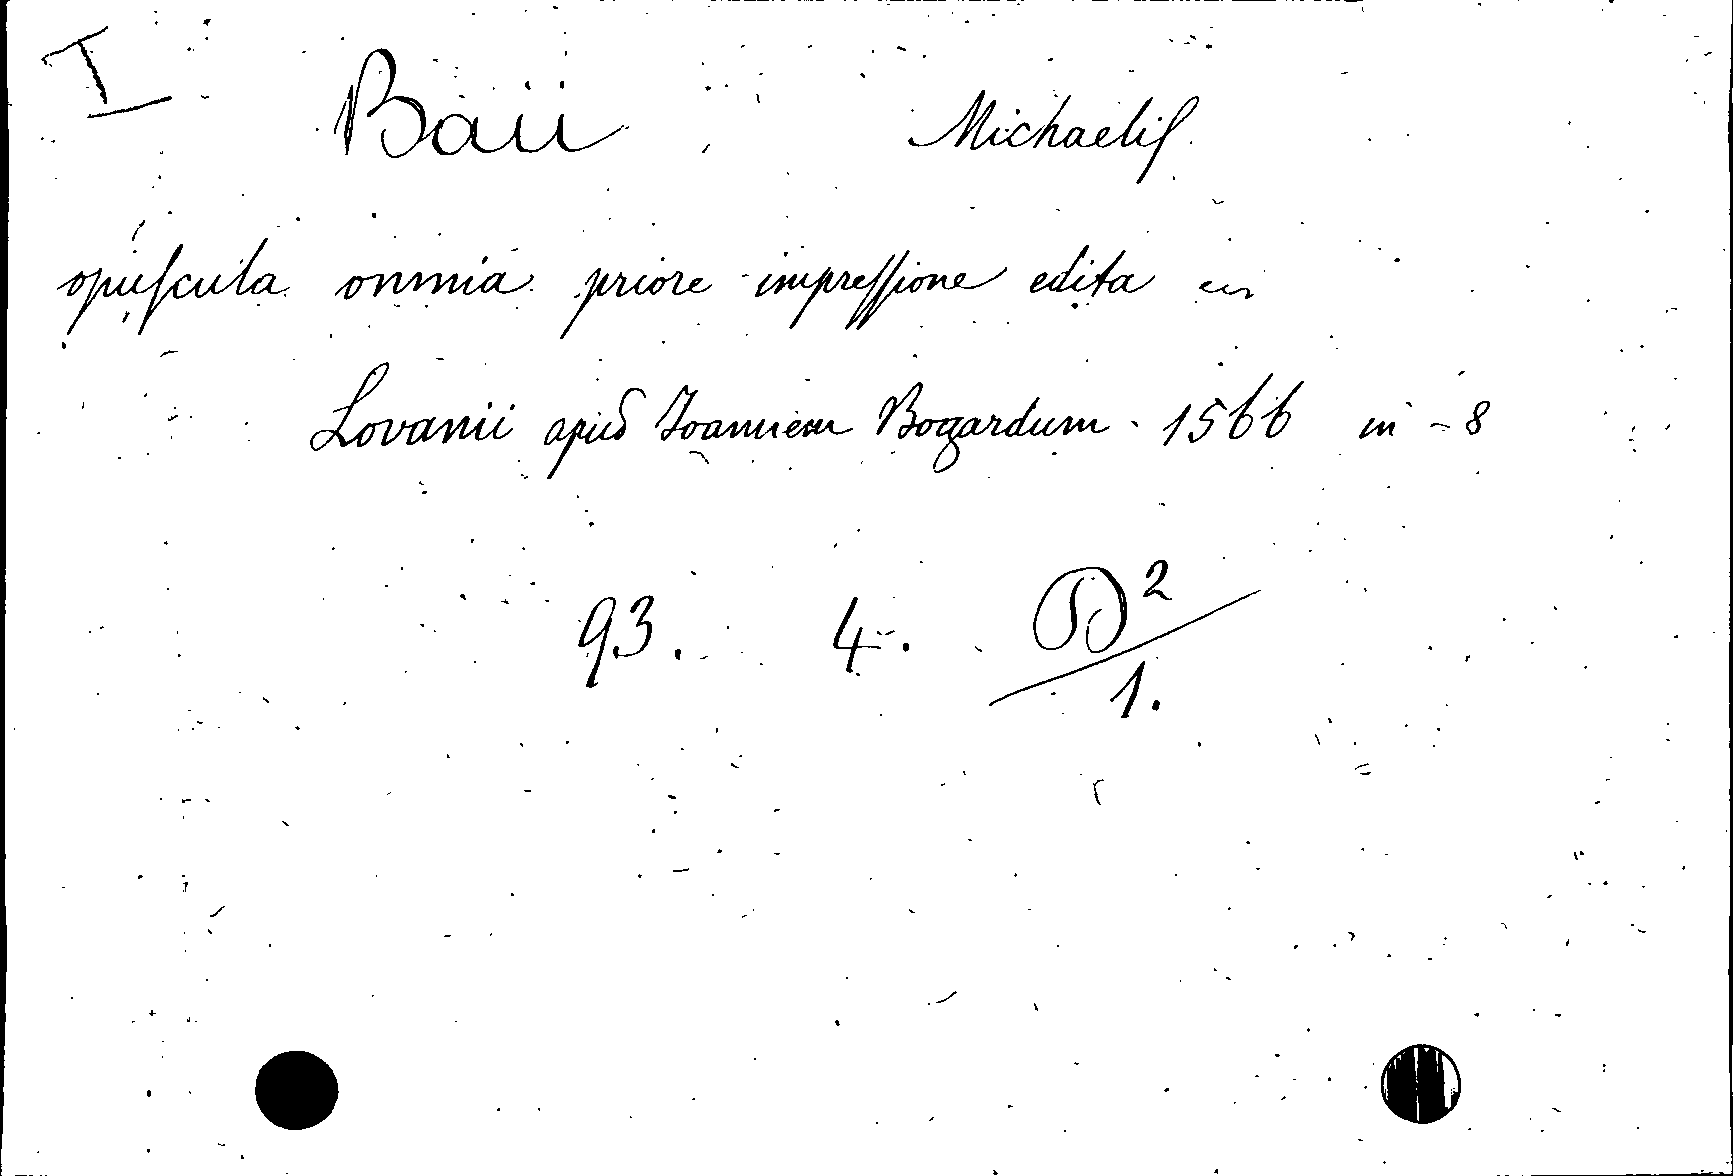 I
Baii, Michaelis
opuscula omnia priore impressione edita
Lovanii apud Joannem Bogardum. 1566 in-8
93. 4. D²/1.